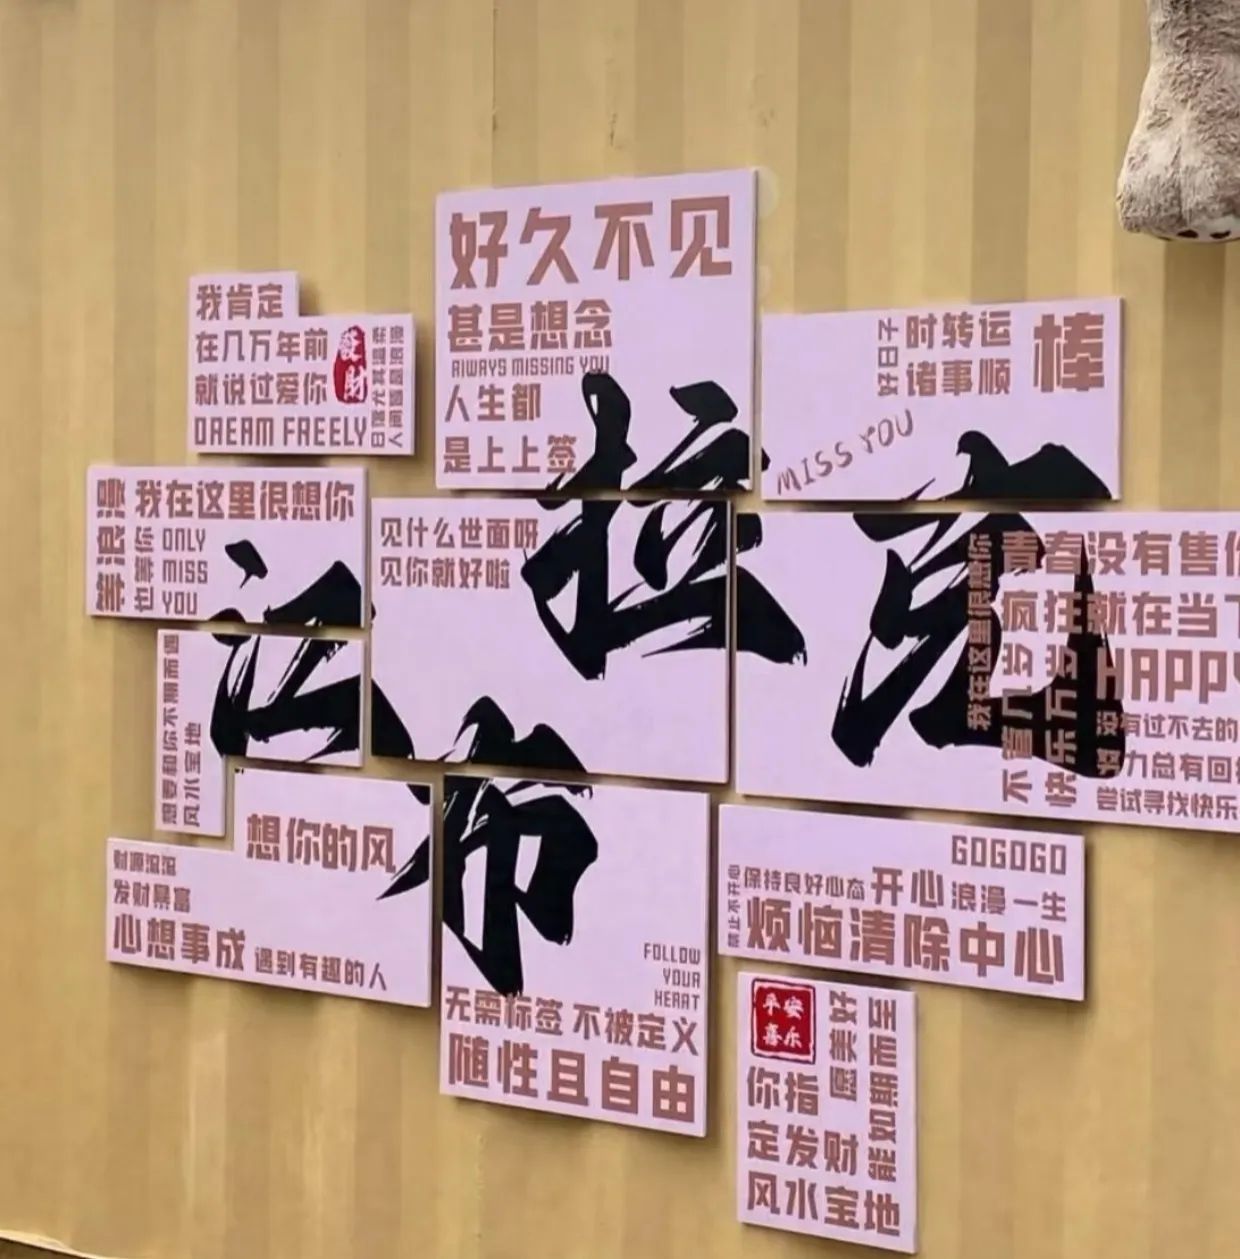 好久不见
甚是想念
AlWAYS MISSING YOU
人生都
是上上签
我肯定
在几万年前
就说过爱你
DREAM FREELY
發财
好日子
时转运
诸事顺
棒
MISS YOU
我在这里很想你
ONLY
MISS
YOU
见什么世面呀
见你就好啦
江
拉
克
布
我在这里很想你
青春没有售
疯狂就在当下
不管几岁
快乐万岁
HAPPY
没有过不去的
努力总有回
尝试寻找快乐
想要和你不期而遇
风水宝地
想你的风
财源滚滚
发财暴富
心想事成
遇到有趣的人
FOLLOW
YOUR
HEART
无需标签 不被定义
随性且自由
GOGOGO
禁止不开心
保持良好心态 开心 浪漫一生
烦恼清除中心
平安
喜乐
愿美好
能如期而至
你指
定发财
风水宝地